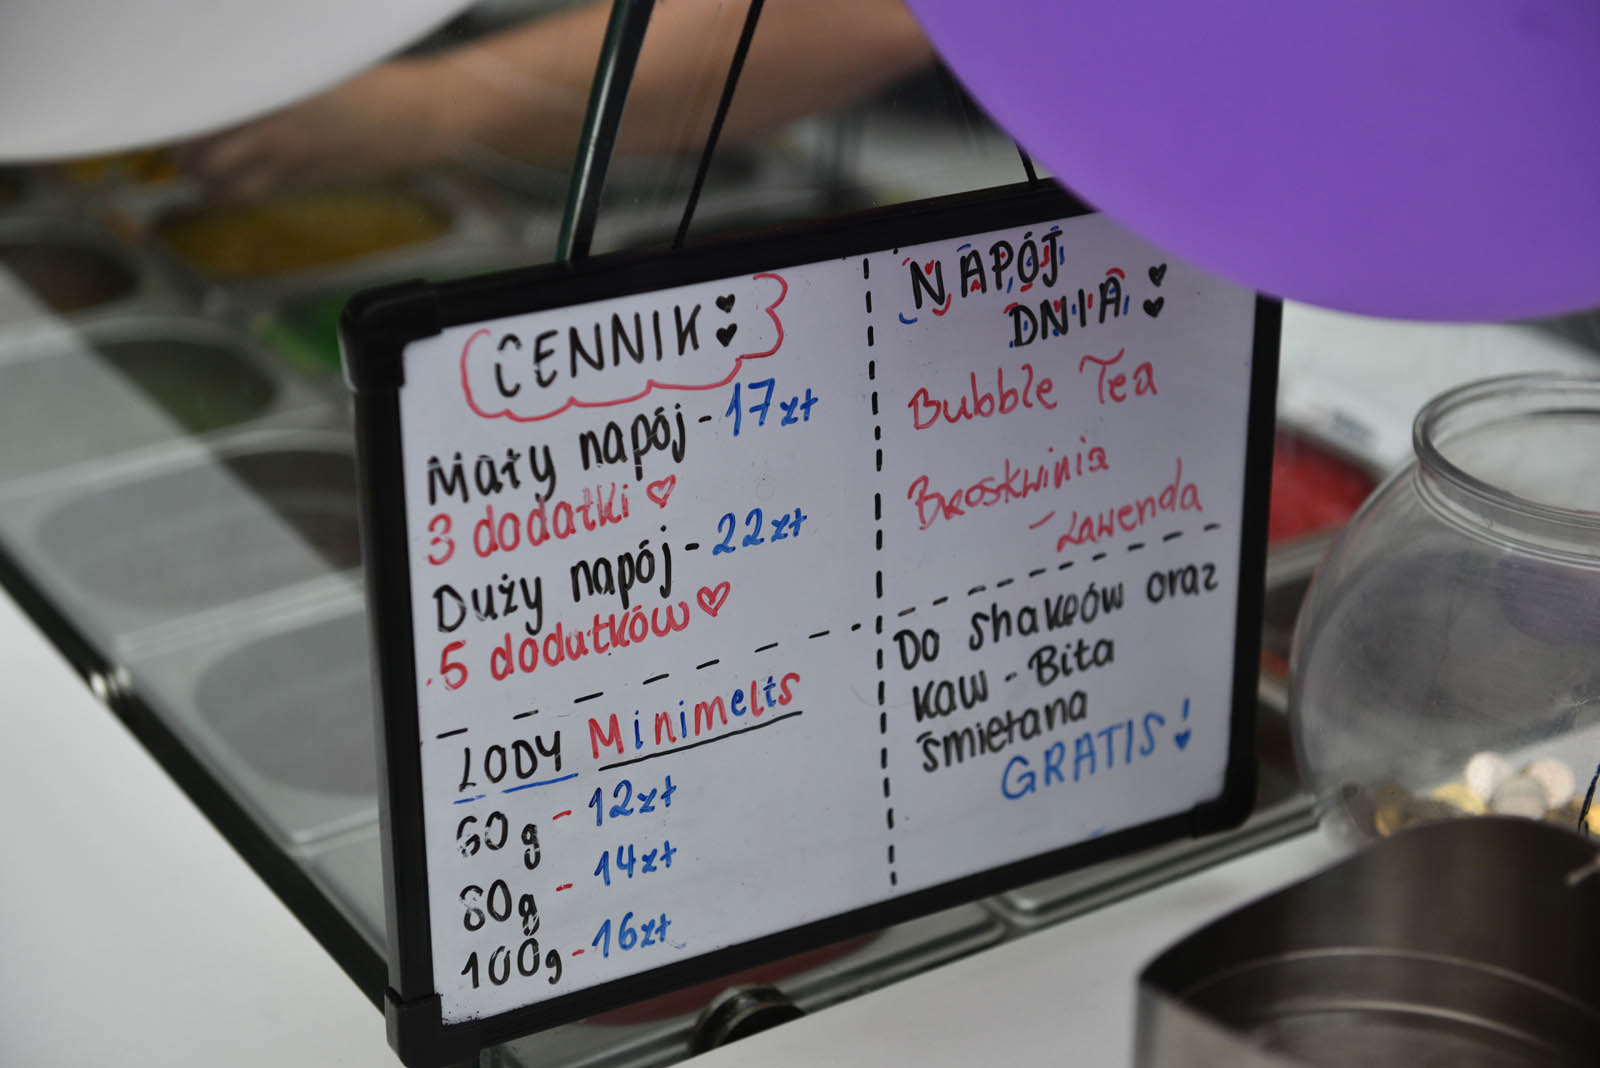 CENNIK
Mały napój - 17zł
3 dodatki
Duży napój - 22zł
5 dodatków
LODY Minimelts
60g - 12zł
80g - 14zł
100g - 16zł
NAPÓJ
DNIA
Bubble Tea
Broskwinia
- Lawenda
Do shakeów oraz
kaw - Bita
śmietana
GRATIS!